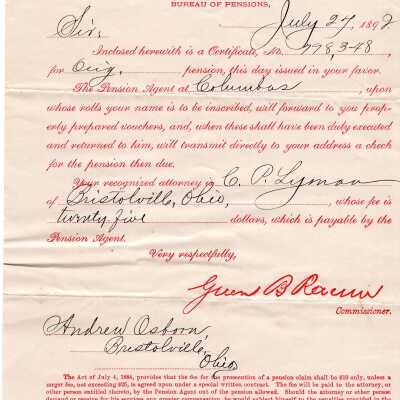 BUREAU OF PENSIONS,
July 27, 1892
Sir:
Inclosed herewith is a Certificate, No. 778,348,
for Orig. pension, this day issued in your favor.
The Pension Agent at Columbus, upon
whose rolls your name is to be inscribed, will forward to you prop-
erly prepared vouchers, and, when these shall have been duly executed
and returned to him, will transmit directly to your address a check
for the pension then due.
Your recognized attorney is C. P. Lyman
of Bristolville, Ohio, whose fee is
twenty five dollars, which is payable by the
Pension Agent.
Very respectfully,
Green B Raum
Commissioner.
Andrew Osborn,
Bristolville,
Ohio
The Act of July 4, 1884, provides that the fee for the prosecution of a pension claim shall be $10 only, unless a
larger fee, not exceeding $25, is agreed upon under a special written contract. The fee will be paid to the attorney, or
other person entitled thereto, by the Pension Agent out of the pension allowed. Should the attorney or other person